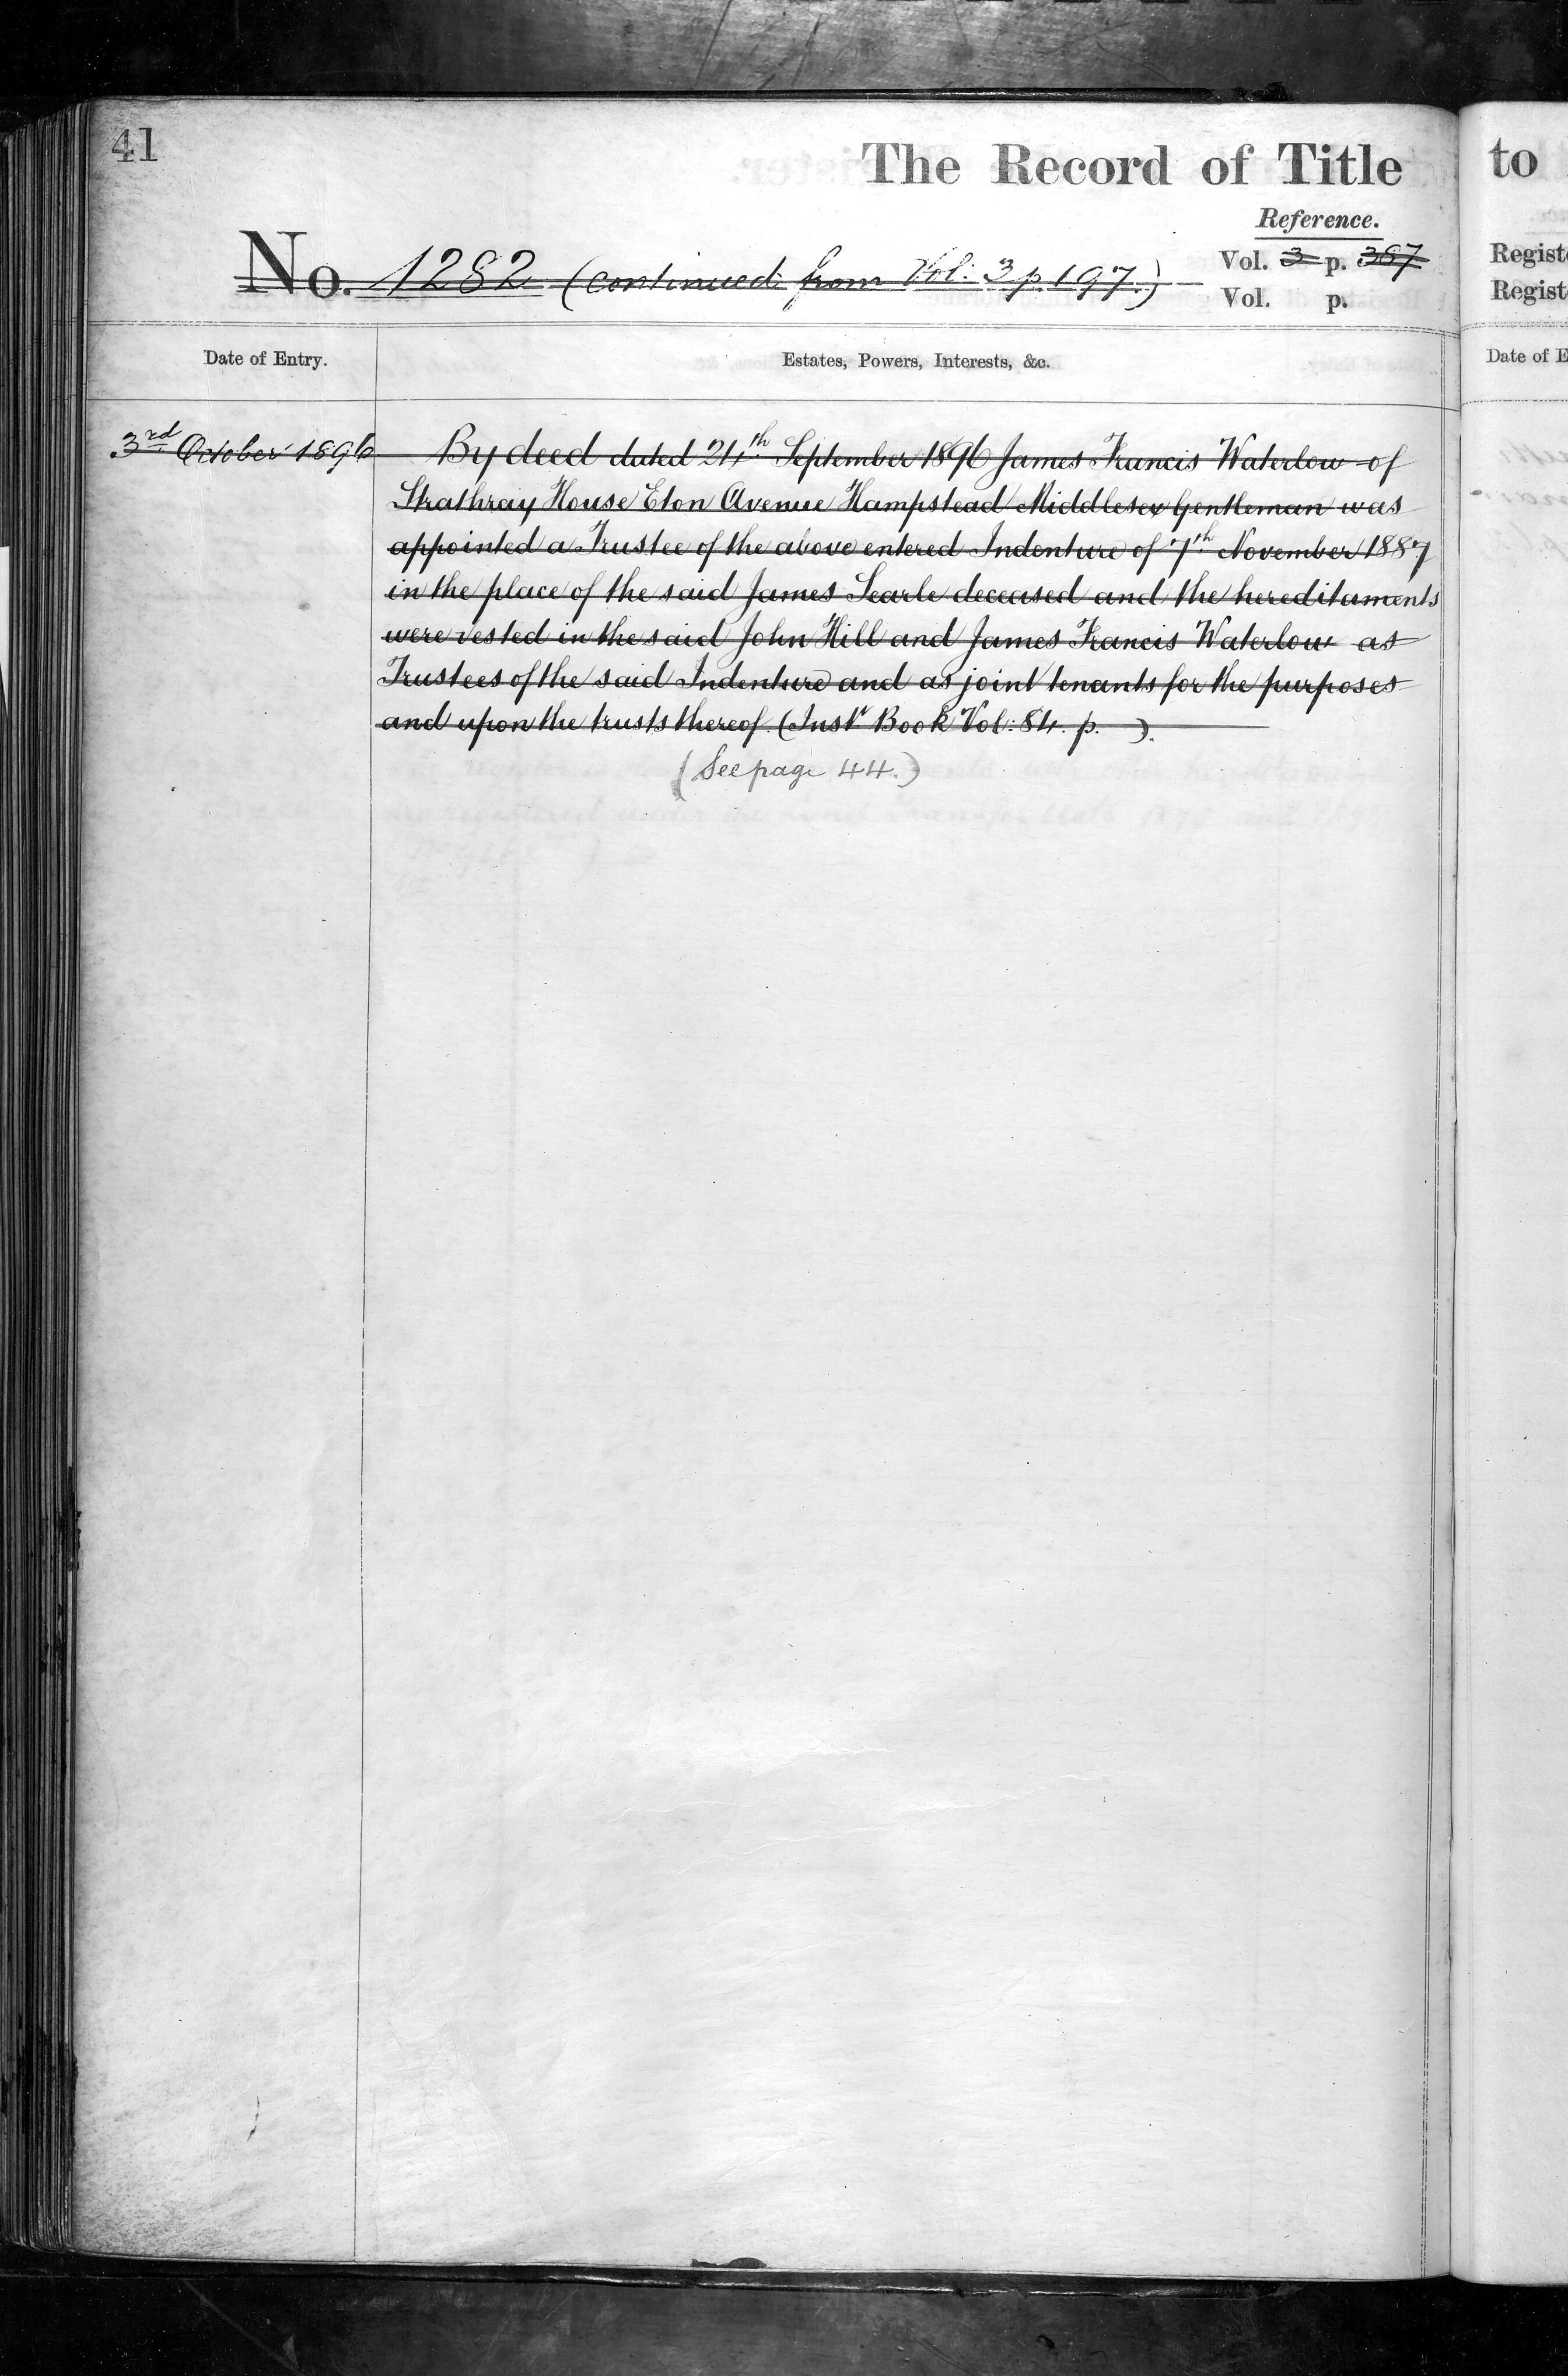 41
The Record of Title
Reference.
No. 1282 (continued from Vol: 3 p 197.)
Vol. 3 p. 367
Vol. p.
Date of Entry.
Estates, Powers, Interests, &c.
3rd October 1896
By deed dated 24th September 1896 James Francis Waterlow of
Strathray House Eton Avenue Hampstead Middlesex Gentleman was
appointed a Trustee of the above entered Indenture of 7th November 1887
in the place of the said James Searle deceased and the hereditaments
were vested in the said John Hill and James Francis Waterlow as
Trustees of the said Indenture and as joint tenants for the purposes
and upon the trusts thereof. (Instt Book Vol: 84. p. ).
(See page 44.)
to
Regist
Regist
Date of E